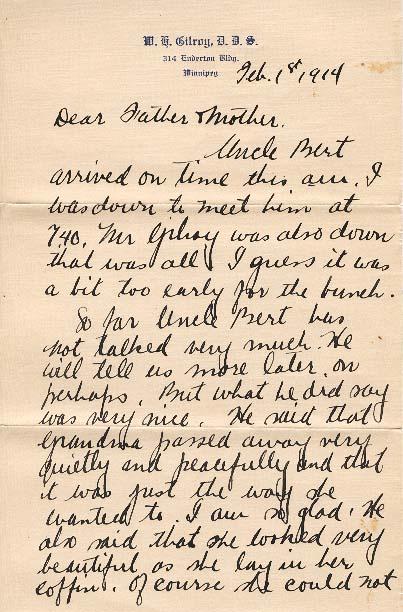 W. H. Gilroy, D. D. S.
314 Enderton Bldg.
Winnipeg
Feb. 1st, 1914
Dear Father & Mother.
Uncle Bert
arrived on time this am. I
was down to meet him at
740. Mr Gilroy was also down
that was all, I guess it was
a bit too early for the bunch.
So far Uncle Bert has
not talked very much. He
will tell us more later on
perhaps. But what he did say
was very nice. He said that
Grandma passed away very
quietly and peacefully and that
it was just the way she
wanted to. I am so glad. He
also said that she looked very
beautiful as she lay in her
coffin. Of course she could not